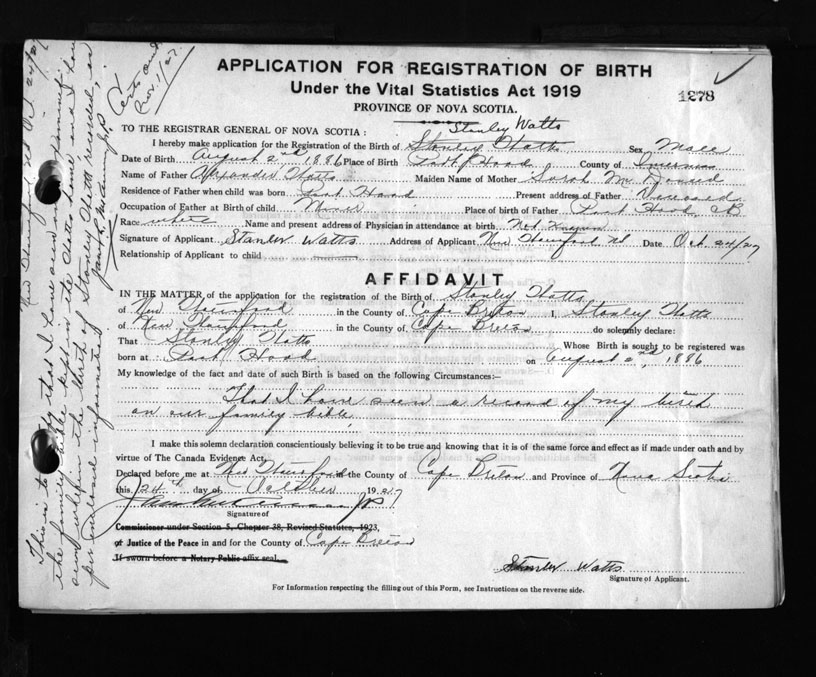 APPLICATION FOR REGISTRATION OF BIRTH
Under the Vital Statistics Act 1919
1278
PROVINCE OF NOVA SCOTIA.
TO THE REGISTRAR GENERAL OF NOVA SCOTIA: Stanley Watts
I hereby make application for the Registration of the Birth of Stanley Watts Sex Male
Date of Birth August 2nd 1886 Place of Birth Port Hood County of Inverness
Name of Father Alexander Watts Maiden Name of Mother Sarah
Residence of Father when child was born Port Hood Present address of Father Deceased
Occupation of Father at Birth of child Miner Place of birth of Father Port Hood CB
Race white Name and present address of Physician in attendance at birth Not Known
Signature of Applicant Stanley Watts Address of Applicant New Date Oct. 24/27
Relationship of Applicant to child
AFFIDAVIT
IN THE MATTER of the application for the registration of the Birth of Stanley Watts
of New in the County of Cape Breton I, Stanley Watts
of New in the County of Cape Breton do solemnly declare:
That Stanley Watts Whose Birth is sought to be registered was
born at Port Hood on August 2nd, 1886
My knowledge of the fact and date of such Birth is based on the following Circumstances:—
That I have seen a record of my birth
on our family bible.
I make this solemn declaration conscientiously believing it to be true and knowing that it is of the same force and effect as if made under oath and by
virtue of The Canada Evidence Act.
Declared before me at New in the County of Cape Breton and Province of Nova Scotia
this 24th day of October 1927
JP
Signature of
Commissioner under Section 5, Chapter 38, Revised Statutes, 1923,
of Justice of the Peace in and for the County of Cape Breton
If sworn before a Notary Public affix seal.
Stanley Watts
Signature of Applicant.
For Information respecting the filling out of this Form, see Instructions on the reverse side.
Nov. 1/27.
Oct 24/27
This is to certify that I have seen
the family bible kept in the Watts home and I have
seen the birth of Stanley Watts recorded, as